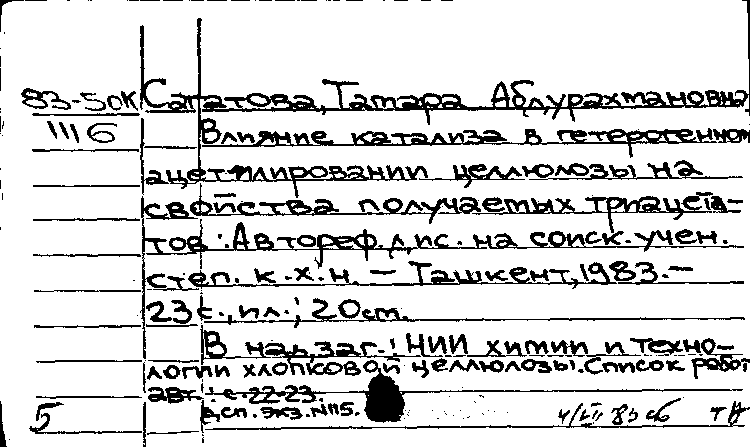 83-5ОК Сагатова, Тамара Абдурахмановна
1116 Влияние катализа в гетерогенном
ацетилировании целлюлозы на
свойства получаемых триацета-
тов : Автореф. дис. на соиск. учен.
степ. к.х.н. — Ташкент, 1983. —
23 с., ил.; 20 см.
В надзаг.: НИИ химии и техно-
логии хлопковой целлюлозы. Список работ
авт.: с. 22-23.
Д.сп. экз. №115.
5